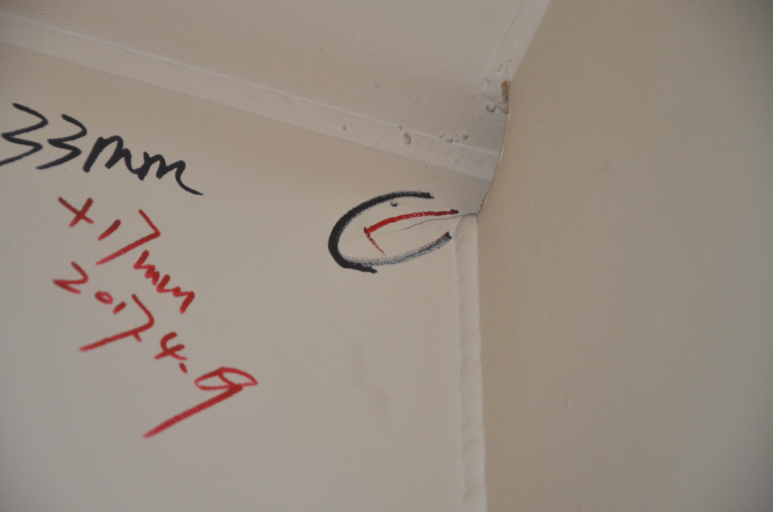 33mm
+17mm
2017.4.9